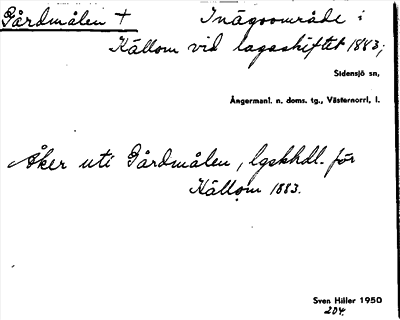 Gårdmålen +
Inägoområde i
Källom vid lagaskiftet 1883;
Sidensjö sn,
Ångermanl. n. doms. tg., Västernorrl. l.
Åker uti Gårdmålen, lgskhdl. för
Källom 1883.
Sven Hiller 1950
204.